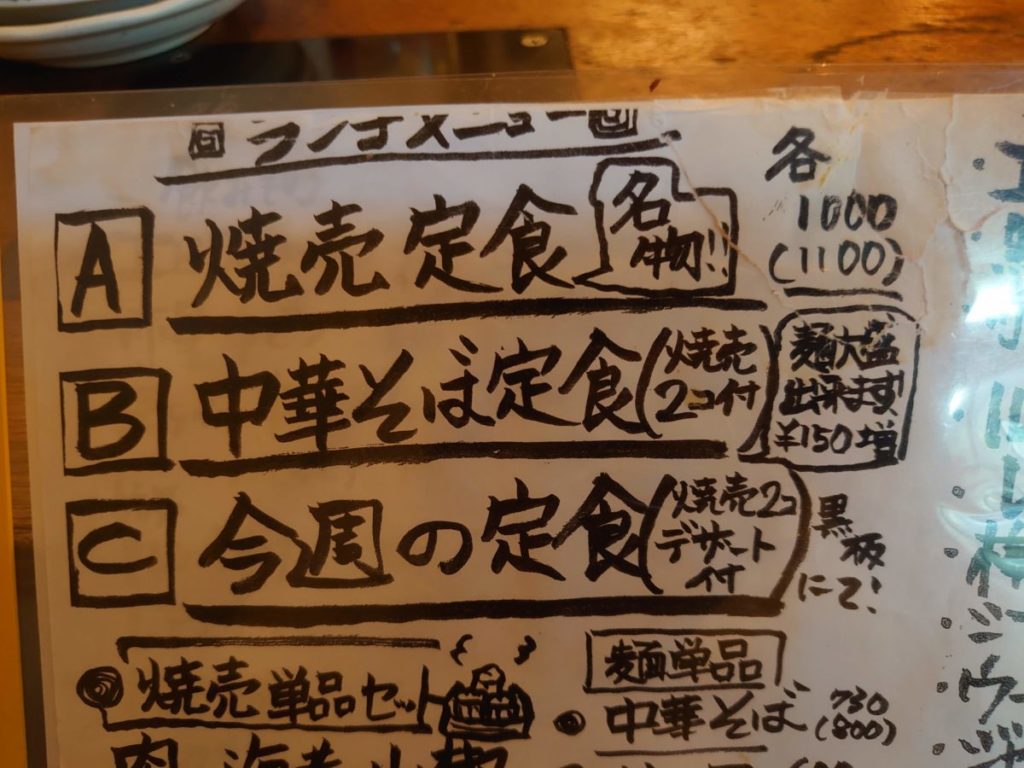 ランチメニュー
各
A 焼売定食 名物!! 1000
(1100)
B 中華そば定食 (焼売
2コ付)
麺大盛
出来ます
¥150増
C 今週の定食 (焼売2コ
デザート
付)
黒板
にて!
焼売単品セット
麺単品
中華そば 730
(800)